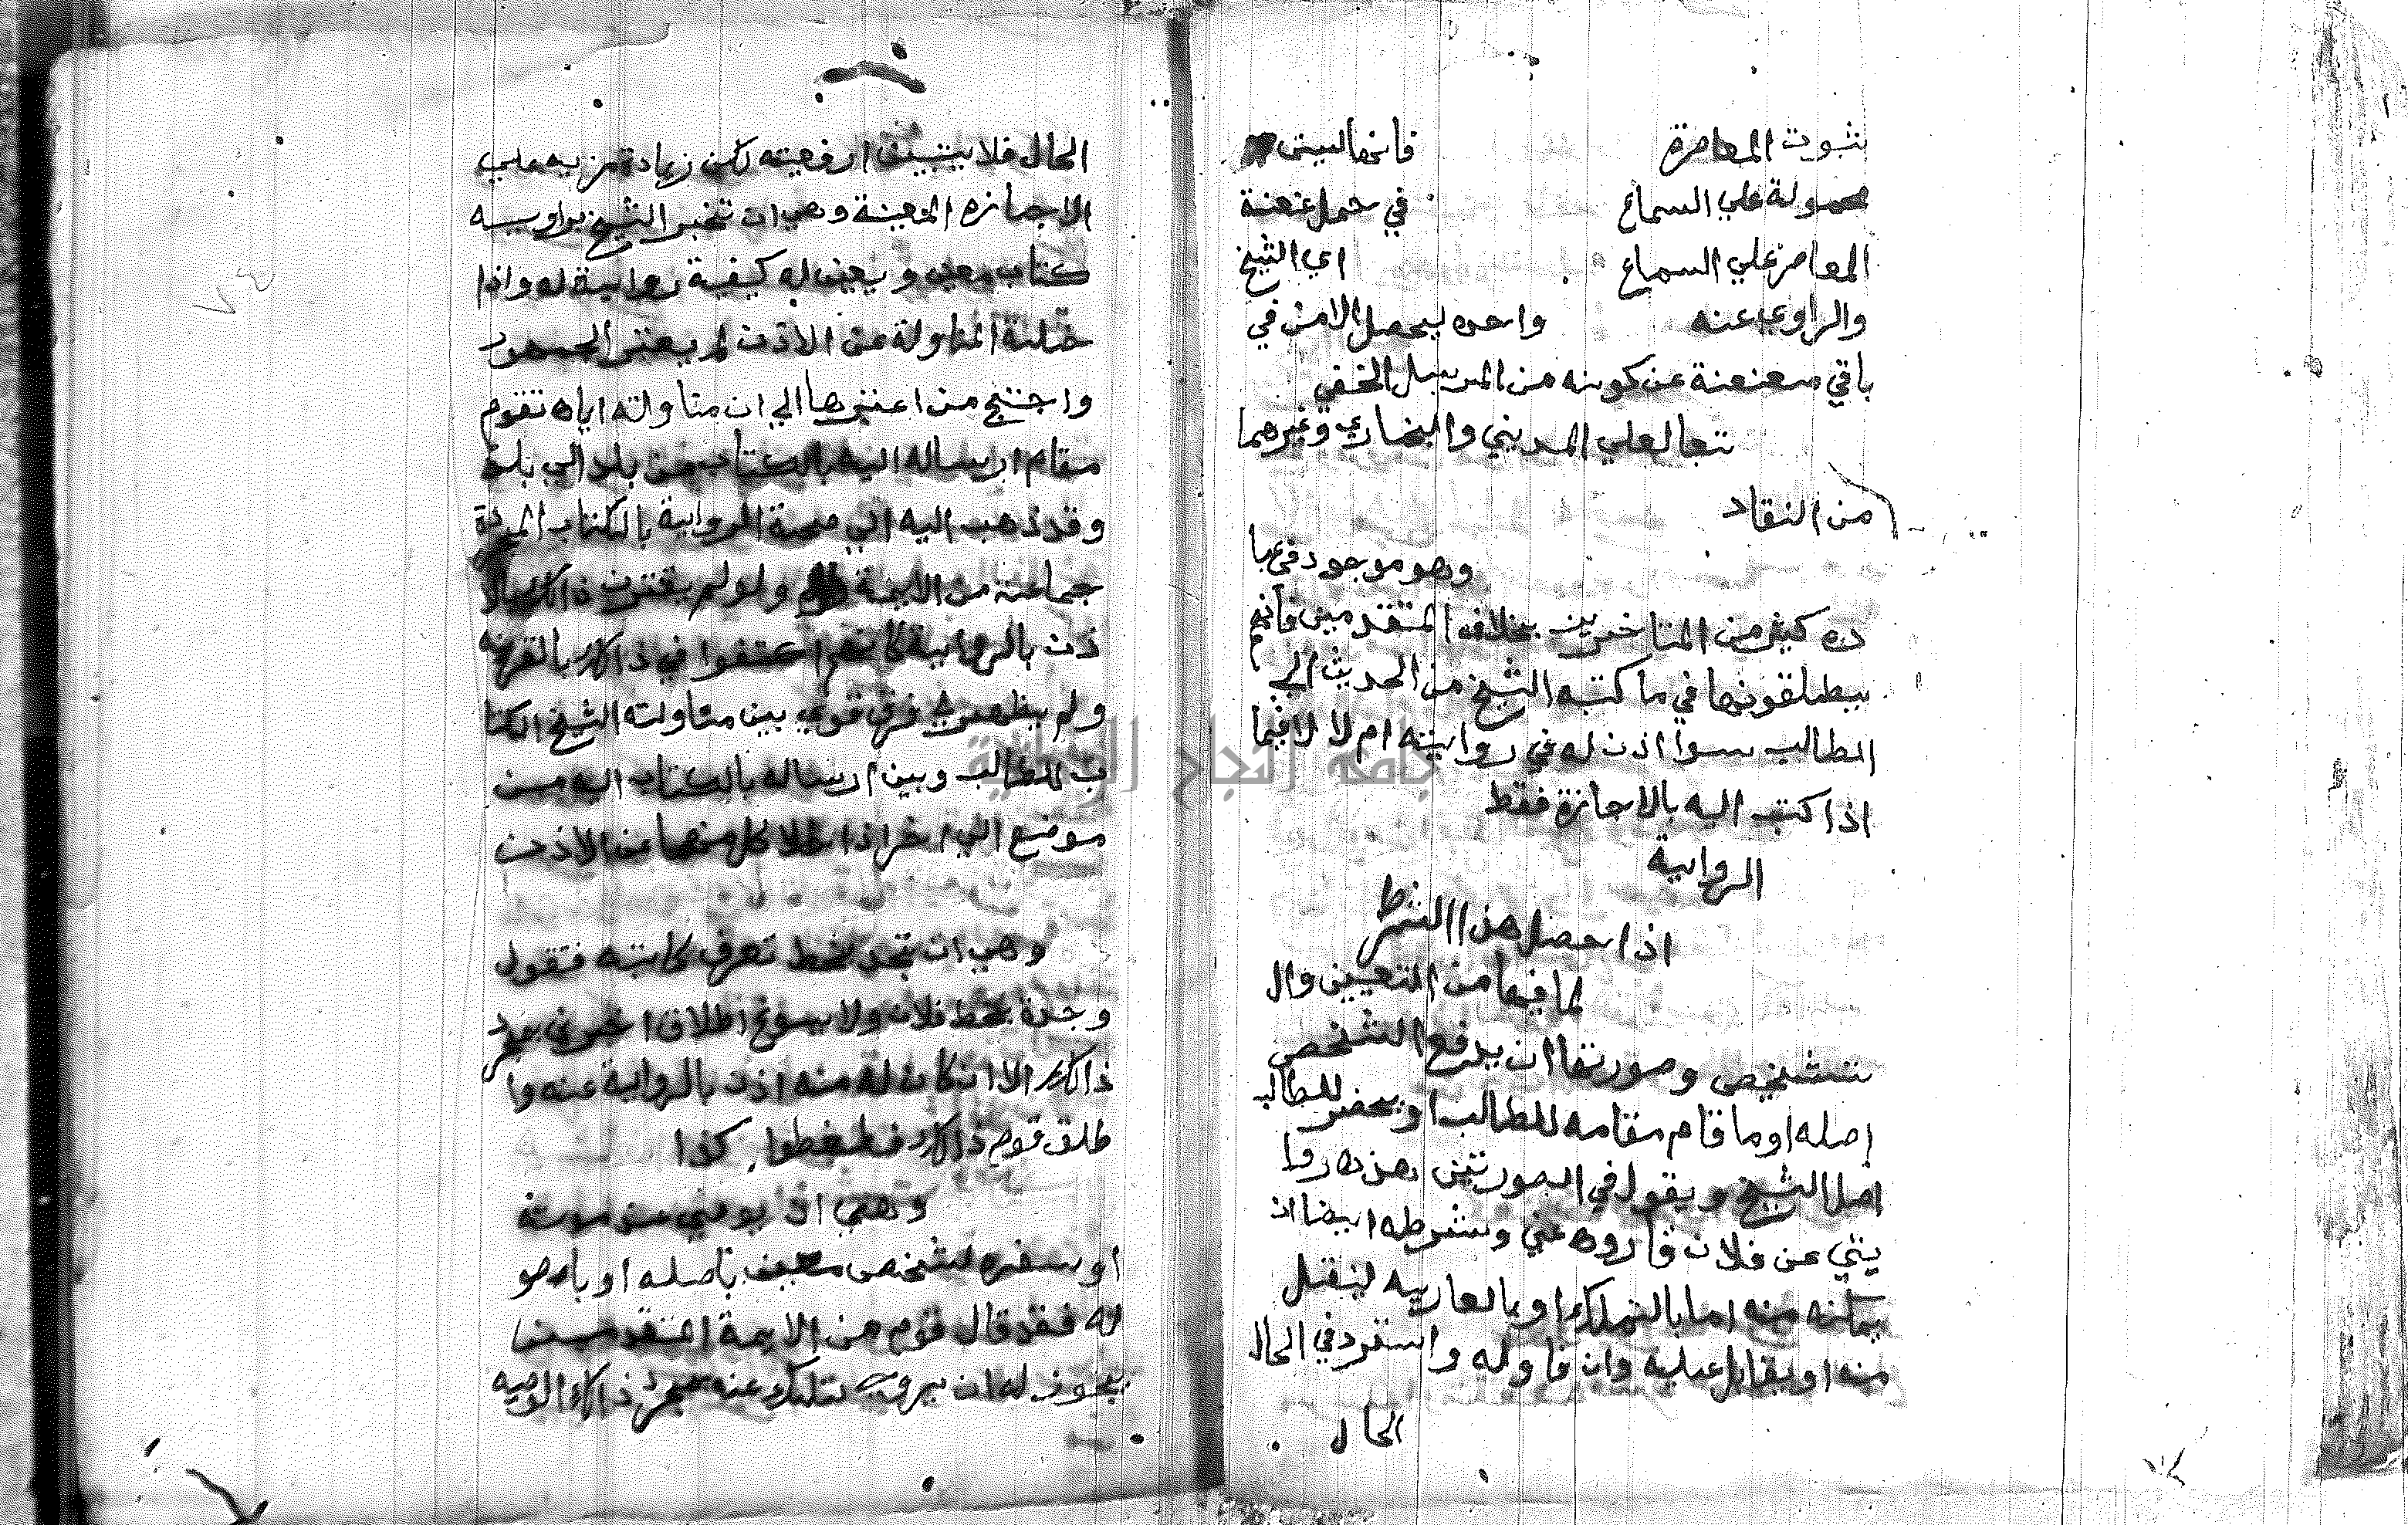 ثبوت المعاصرة فانها ليست
محمولة علي السماع في حمل عنعنة
المعاصر علي السماع اي الشيخ
والراوي عنه واحده ليحصل الامن في
باقي معنعنة عن كونه من المرسل الخفي
تبعا لعلي المديني والبخاري وغيرهما
من النقاد
وهو موجود في عبا
ره كثير من المتاخرين بخلاف المتقدمين فانهم
يطلقونها في ما كتبه الشيخ من الحديث الي
الطالب سوا اذن له في روايته ام لا لا فيما
اذا كتب اليه بالاجازة فقط
الرواية
اذا حصل هذا الشرط
لما فيها من التعيين وال
تشخيص وصورتها ان يدفع الشخص
اصله او ما قام مقامه للطالب او يحضر للطالب
اصل الشيخ ويقول في الصورتين هذه روا
يتي عن فلان فاروه عني وشرطه ايضا ان
يمكنه منه اما بالتملك او بالعاريه لينقل
منه او يقابل عليه وان ناوله واسترد في الحال
الحال
الحال فلا يتبين ارفعيته لكن زيادة مزيه علي
الاجازه المعينة وهي ان تخبر الشيخ برواييه
كتاب معين ويعين له كيفية رواية له واذا
خلت المناولة من الاذن لم يعتبر الجمهور
واحتج من اعتبرها الي ان مناولته اياه تقوم
مقام ارساله اليه بالكتاب من بلد الي بلد
وقد ذهب اليه الي صحة الرواية بالكتاب المجردة
جماعة من الايمة ولو لم يقترن ذالك بالا
ذن بالرواية كانهم اكتفوا في ذالك بالقرينه
ولم يظهر لي فرق قوي بين مناولته الشيخ الكتا
ب للطالب وبين ارساله بالكتاب اليه من
موضع الي اخر اذا خلا كل منهما عن الاذن
وهي ان تجد بخط تعرف كاتبه فتقول
وجدة بخط فلان ولا يسوغ اطلاق اخبرني بمجرد
ذالك الا ان كان له منه اذن بالرواية عنه وا
طلق قوم ذالك فغلطوا كذا
وهي ان يوصي عند موته
او سفره لشخص معين باصله او باصو
له فقد قال قوم من الايمة المتقدمين
يجوز له ان يروي تلك عنه بمجرد ذالك الوصيه
جامعة النجاح الوطنية